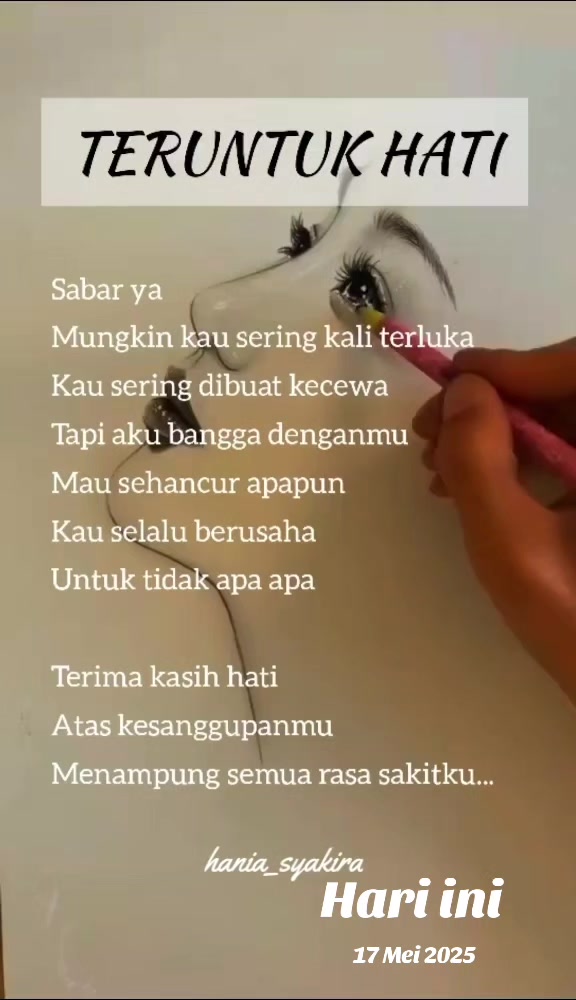 TERUNTUK HATI
Sabar ya
Mungkin kau sering kali terluka
Kau sering dibuat kecewa
Tapi aku bangga denganmu
Mau sehancur apapun
Kau selalu berusaha
Untuk tidak apa apa
Terima kasih hati
Atas kesanggupanmu
Menampung semua rasa sakitku...
hania_syakira
Hari ini
17 Mei 2025